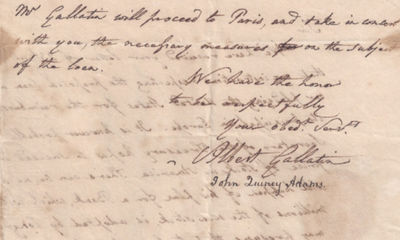 Mr Gallatin will proceed to Paris, and take in concert
with you, the necessary measures for on the subject
of the loan.
We have the honor
to be respectfully
Your obedt. Servt.
Albert Gallatin
John Quincy Adams.